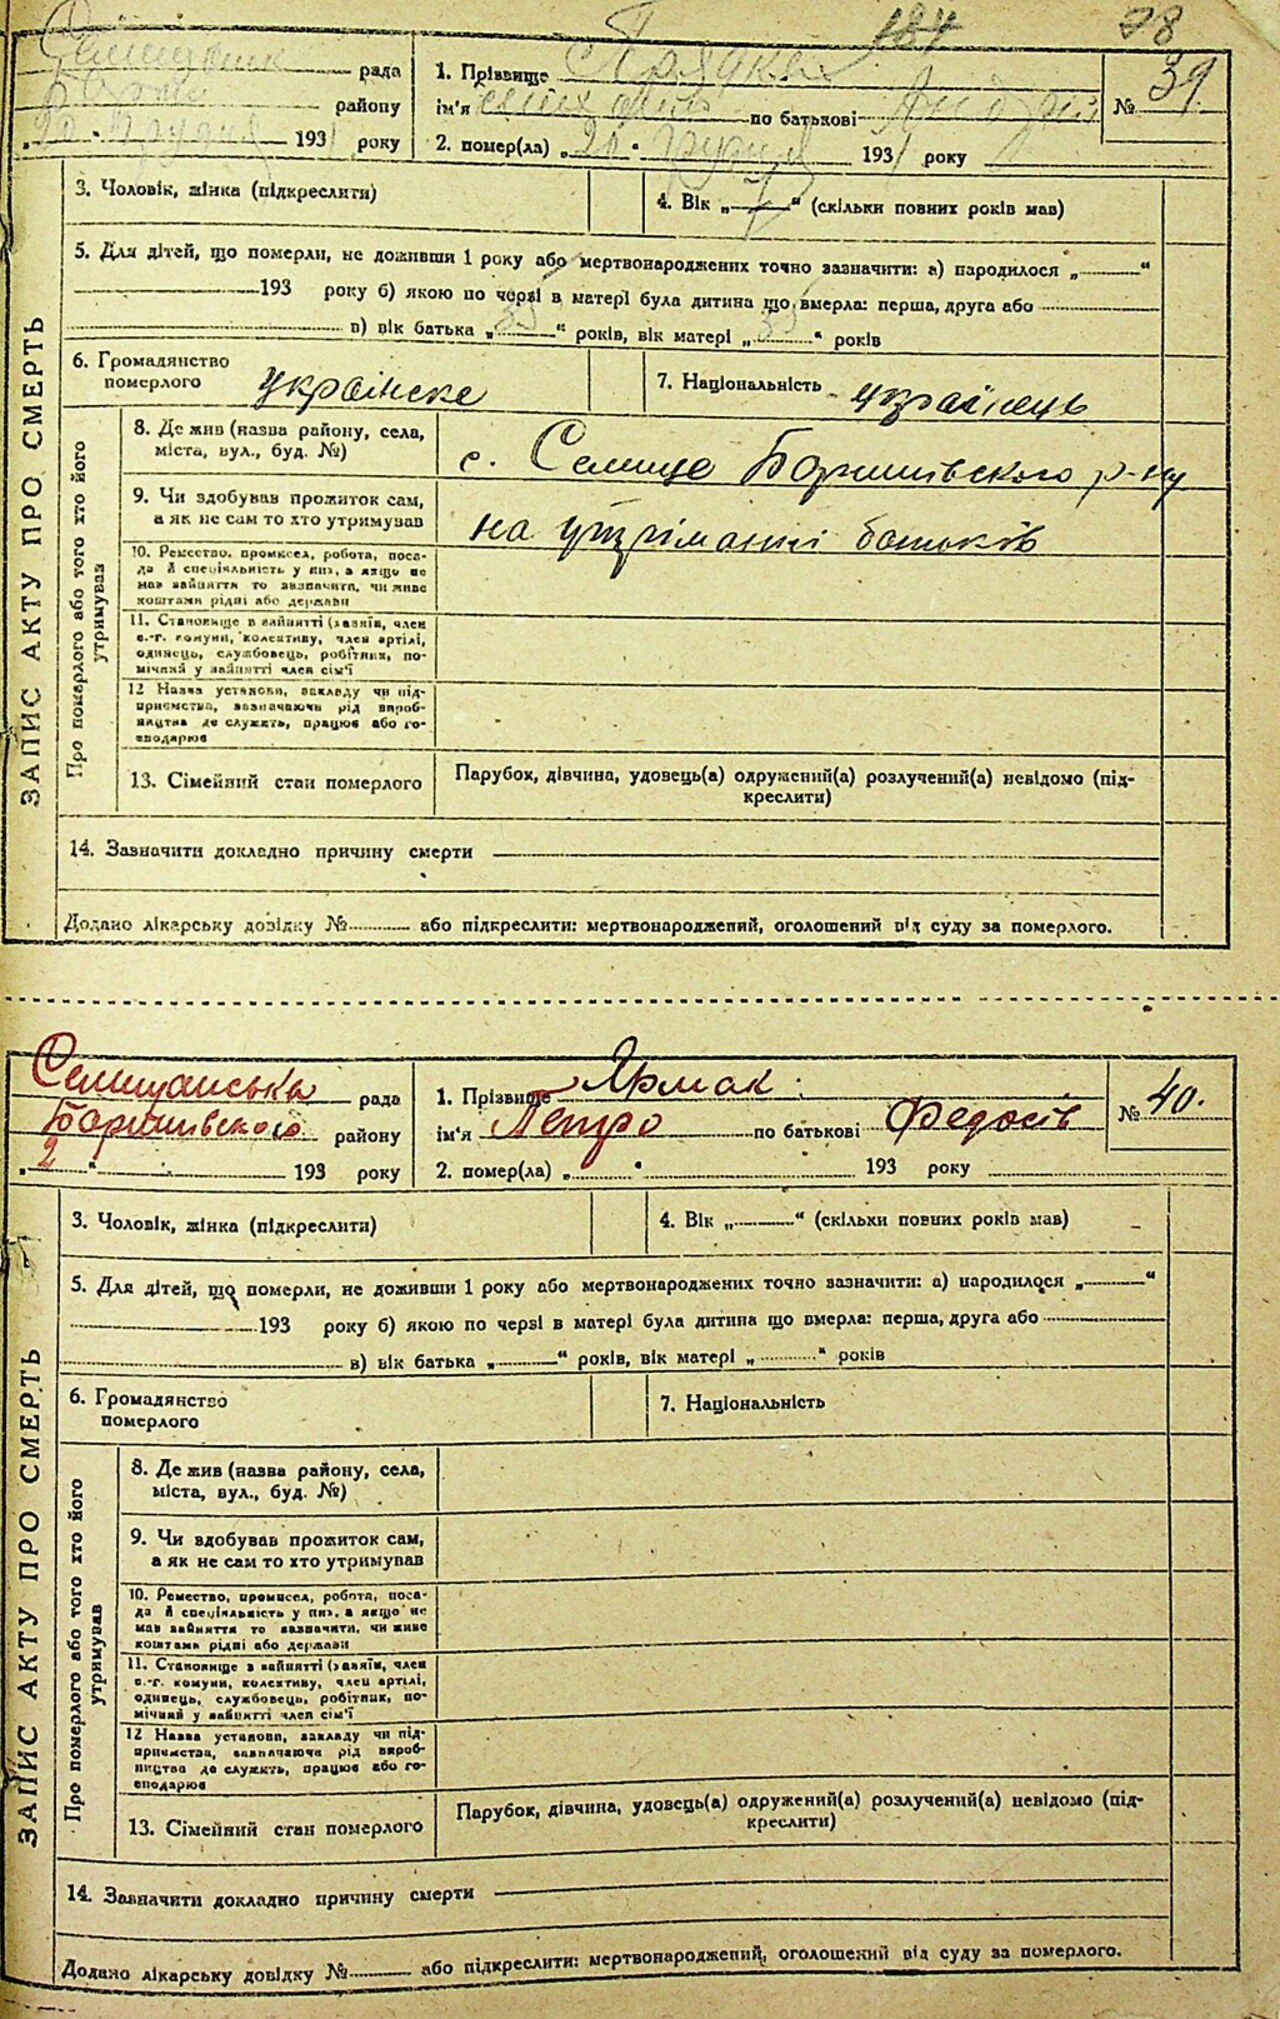 184 78
рада
району
„20“ грудня 1931 року
1. Прізвище
ім'я по батькові Андрій
2. помер(ла) „20“ грудня 1931 року
№ 39
ЗАПИС АКТУ ПРО СМЕРТЬ
3. Чоловік, жінка (підкреслити)
4. Вік „“ (скільки повних років мав)
5. Для дітей, що померли, не доживши 1 року або мертвонароджених точно зазначити: а) народилося „“
193 року б) якою по черзі в матері була дитина що вмерла: перша, друга або
в) вік батька „“ років, вік матері „“ років
6. Громадянство
померлого українське
7. Національність українець
Про померлого або того хто його
утримував
8. Де жив (назва району, села,
міста, вул., буд. №)
с. Селище Баришівского р-ну
9. Чи здобував прожиток сам,
а як не сам то хто утримував
на утріманні батьків
10. Ремество, промисел, робота, поса-
да й спеціяльність у них, а якщо не
мав зайняття то зазначити, чи живе
коштами рідні або держави
11. Становище в зайнятті (хазяїн, член
с.-г. комуни, колективу, член артілі,
одинець, службовець, робітник, по-
мічний у зайнятті член сім'ї
12 Назва установи, закладу чи під-
приємства, зазначаючи рід вироб-
ництва де служить, працює або го-
сподарює
13. Сімейний стан померлого
Парубок, дівчина, удовець(а) одружений(а) розлучений(а) невідомо (під-
креслити)
14. Зазначити докладно причину смерти
Додано лікарську довідку № або підкреслити: мертвонароджений, оголошений від суду за померлого.
Селищанська рада
Баришівского району
„2“ 193 року
1. Прізвище Ярмак
ім'я Петро по батькові Федосів
2. помер(ла) „“ 193 року
№ 40.
ЗАПИС АКТУ ПРО СМЕРТЬ
3. Чоловік, жінка (підкреслити)
4. Вік „“ (скільки повних років мав)
5. Для дітей, що померли, не доживши 1 року або мертвонароджених точно зазначити: а) народилося „“
193 року б) якою по черзі в матері була дитина що вмерла: перша, друга або
в) вік батька „“ років, вік матері „“ років
6. Громадянство
померлого
7. Національність
Про померлого або того хто його
утримував
8. Де жив (назва району, села,
міста, вул., буд. №)
9. Чи здобував прожиток сам,
а як не сам то хто утримував
10. Ремество, промисел, робота, поса-
да й спеціяльність у них, а якщо не
мав зайняття то зазначити, чи живе
коштами рідні або держави
11. Становище в зайнятті (хазяїн, член
с.-г. комуни, колективу, член артілі,
одинець, службовець, робітник, по-
мічний у зайнятті член сім'ї
12 Назва установи, закладу чи під-
приємства, зазначаючи рід вироб-
ництва де служить, працює або го-
сподарює
13. Сімейний стан померлого
Парубок, дівчина, удовець(а) одружений(а) розлучений(а) невідомо (під-
креслити)
14. Зазначити докладно причину смерти
Додано лікарську довідку № або підкреслити: мертвонароджений, оголошений від суду за померлого.